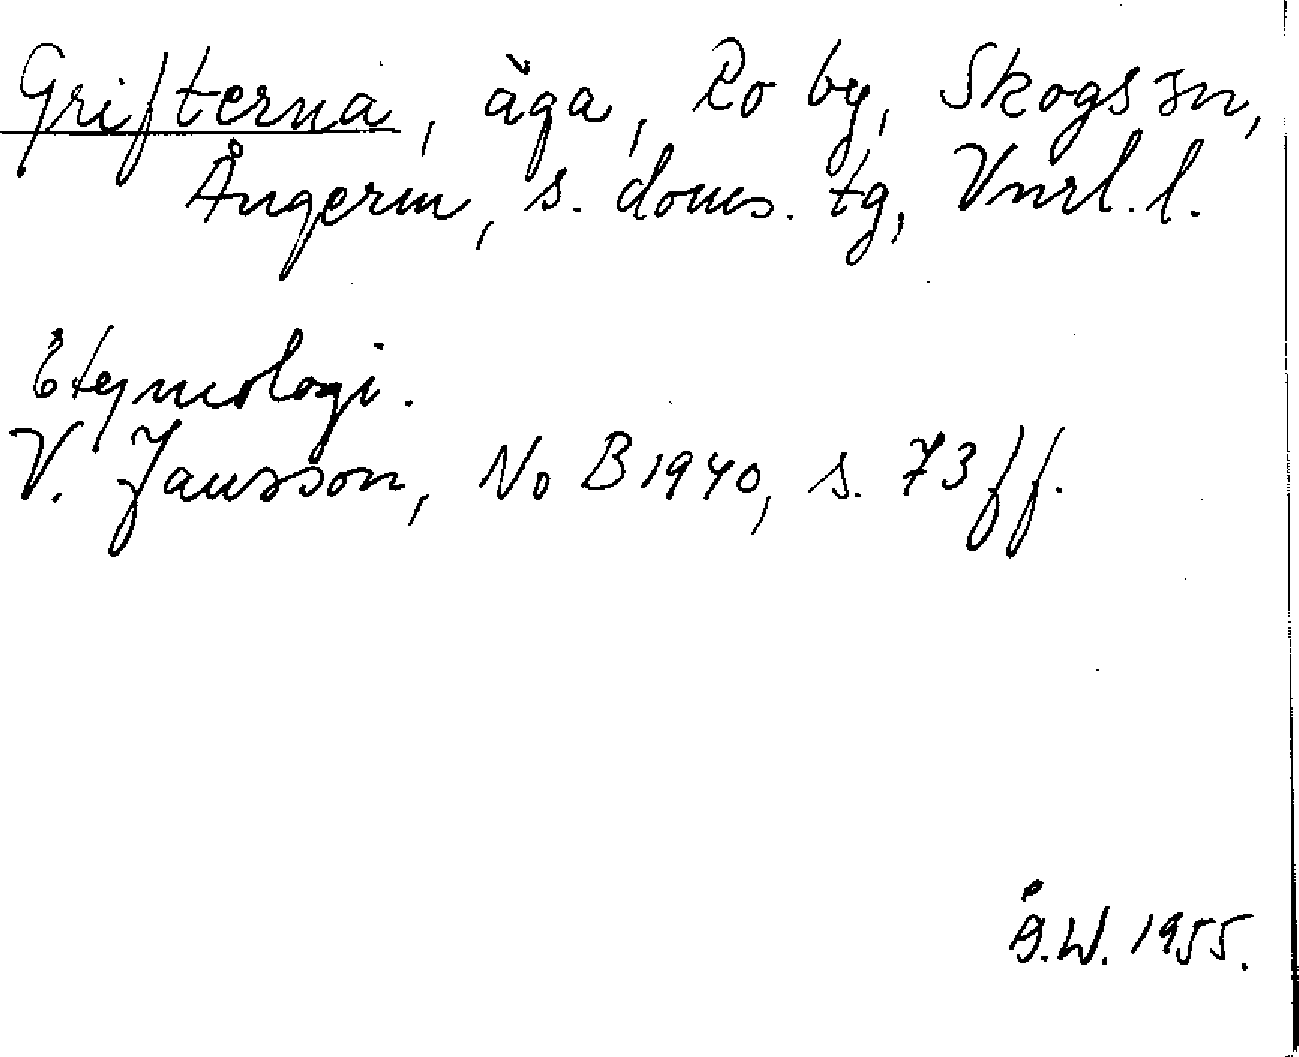 Grifterna, äga, Ro by, Skogs sn,
Ångerm, s. doms. tg, Vnrl. l.
Etymologi.
V. Jansson, No B 1940, s. 73 ff.
Å.W. 1955.